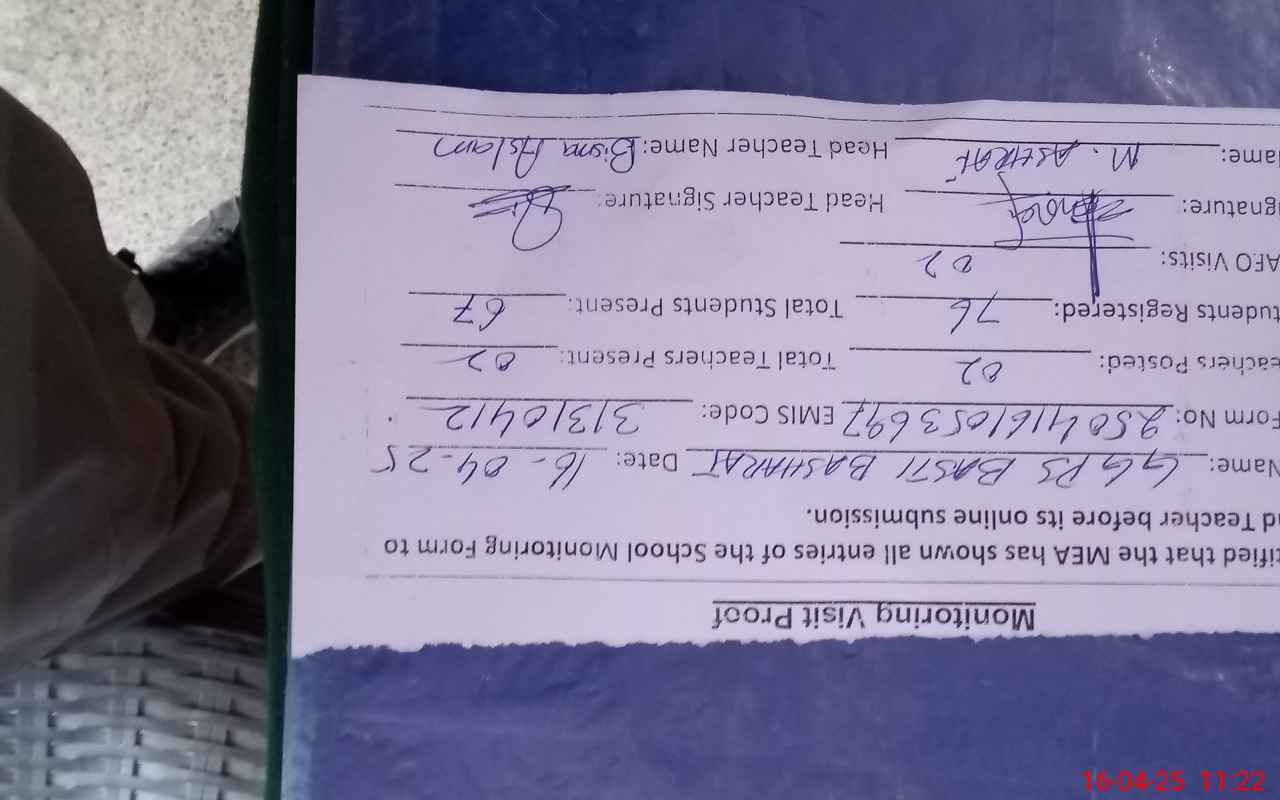 Monitoring Visit Proof
tified that the MEA has shown all entries of the School Monitoring Form to
d Teacher before its online submission.
Name: GGPS BASTI BASHARAT Date: 16-04-25
Form No: 2504161053697 EMIS Code: 31310412
eachers Posted: 02 Total Teachers Present: 02
tudents Registered: 76 Total Students Present: 67
AEO Visits: 02
ignature: Head Teacher Signature:
ame: M. ASHRAF Head Teacher Name: Bisma Aslam
16-04-25 11:22